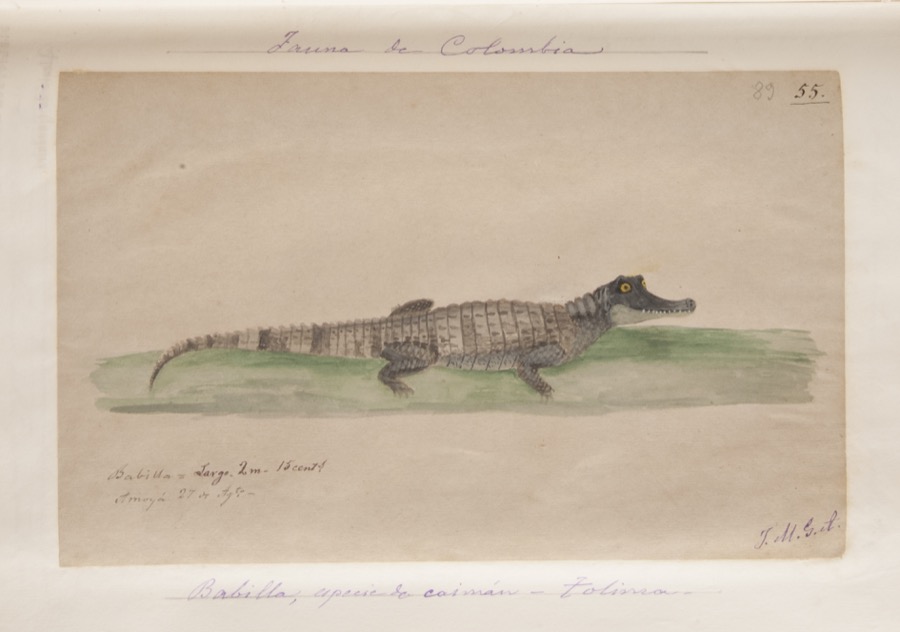 Fauna de Colombia
89 55.
Babilla = Largo. 2 m. 15 cent.
Amoyá 27 de Agto -
J. M. G. A.
Babilla, especie de caimán - Tolima -